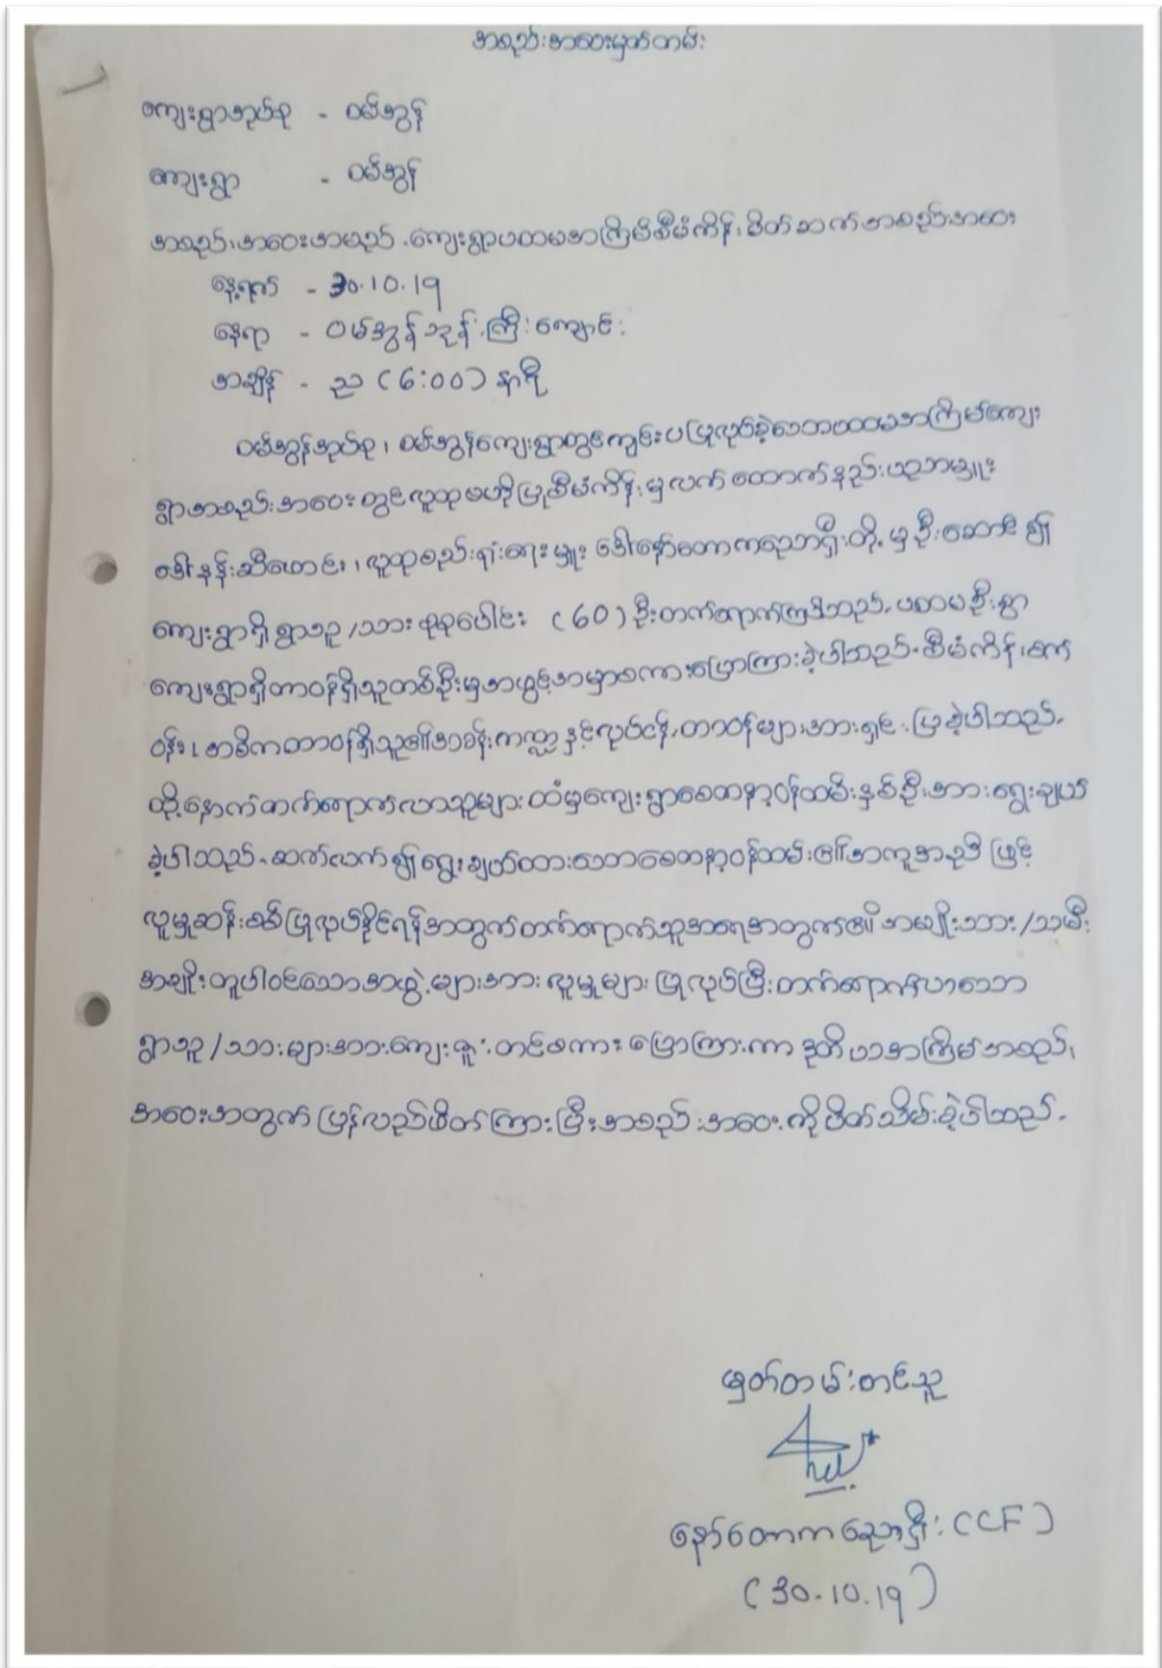 အစည်းအဝေးမှတ်တမ်း
ကျေးရွာအုပ်စု - ဝမ်အွန်
ကျေးရွာ - ဝမ်အွန်
အစည်းအဝေးအမည် - ကျေးရွာပထမအကြိမ်စီမံကိန်းမိတ်ဆက်အစည်းအဝေး
နေ့ရက် - 30.10.19
နေရာ - ဝမ်အွန်ဘုန်းကြီးကျောင်း
အချိန် - ည (6:00) နာရီ
ဝမ်အွန်အုပ်စု၊ ဝမ်အွန်ကျေးရွာတွင်ကျင်းပပြုလုပ်ခဲ့သောပထမအကြိမ်ကျေး
ရွာအစည်းအဝေးတွင်လူထုဗဟိုပြုစီမံကိန်းမှလက်ထောက်နည်းပညာမှူး
ဒေါ်နန်းဆီဟောင်း၊ လူထုစည်းရုံးရေးမှူး ဒေါ်နော်တောကညောရှီးတို့မှဦးဆောင်၍
ကျေးရွာရှိရွာသူ/သားစုစုပေါင်း (60) ဦးတက်ရောက်ကြပါသည်. ပထမဦးစွာ
ကျေးရွာရှိတာဝန်ရှိသူတစ်ဦးမှအဖွင့်အမှာစကားပြောကြားခဲ့ပါသည်. စီမံကိန်းစက်
ဝန်း၊ အဓိကတာဝန်ရှိသူ၏အခန်းကဏ္ဍနှင့်လုပ်ငန်းတာဝန်များအားရှင်းပြခဲ့ပါသည်.
ထို့နောက်တက်ရောက်လာသူများထံမှကျေးရွာစေတနာ့ဝန်ထမ်းနှစ်ဦးအားရွေးချယ်
ခဲ့ပါသည်. ဆက်လက်၍ရွေးချယ်ထားသောစေတနာ့ဝန်ထမ်း၏အကူအညီဖြင့်
လူမှုဆန်းစစ်ပြုလုပ်နိုင်ရန်အတွက်တက်ရောက်သူအရေအတွက်၏အမျိုးသား/သမီး
အချိုးတူပါဝင်သောအဖွဲ့များအားလူမှုများပြုလုပ်ပြီးတက်ရောက်လာသော
ရွာသူ/သားများအားကျေးဇူးတင်စကားပြောကြားကာဒုတိယအကြိမ်အစည်း
အဝေးအတွက်ပြန်လည်ဖိတ်ကြားပြီးအစည်းအဝေးကိုပိတ်သိမ်းခဲ့ပါသည်.
မှတ်တမ်းတင်သူ
နော်တောကညောရှီး (CF)
(30.10.19)